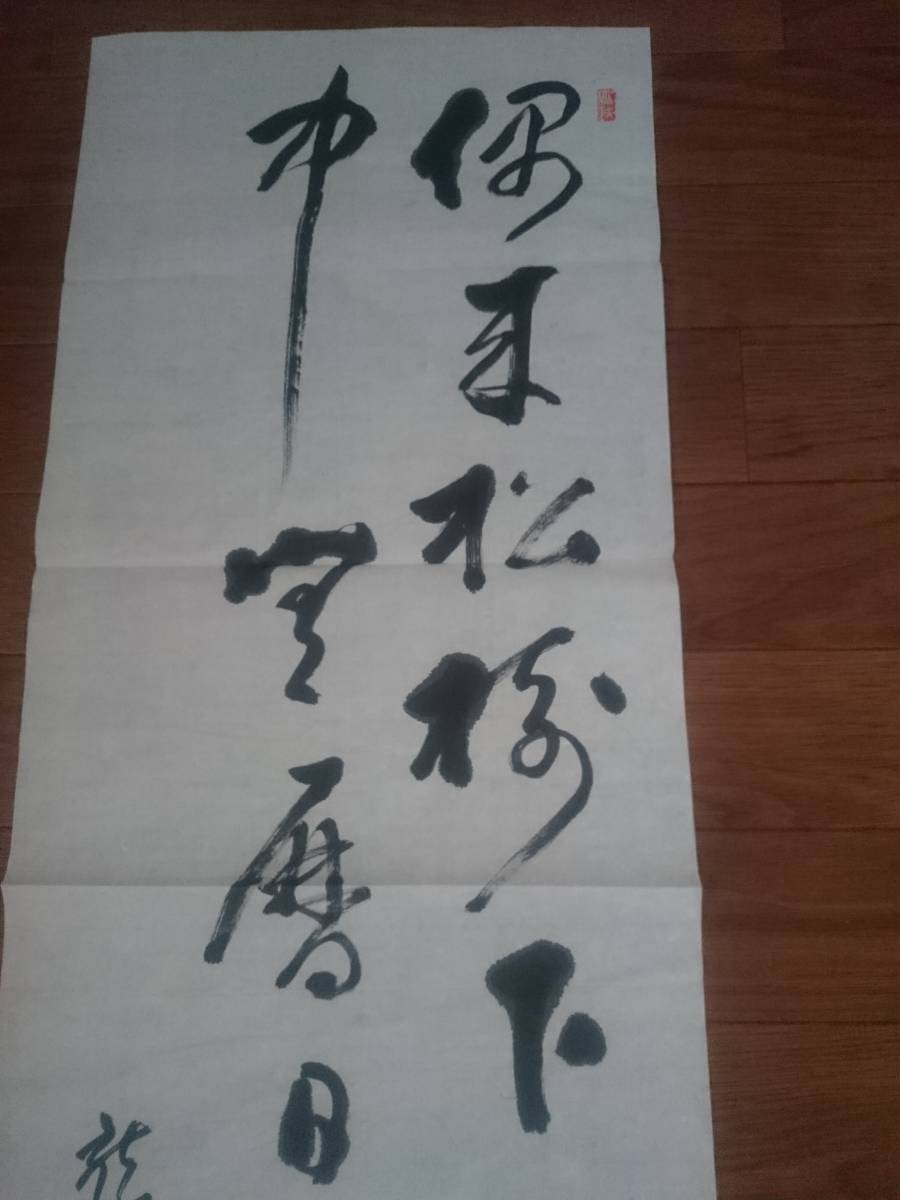 偶来松樹下
中無暦日
龍